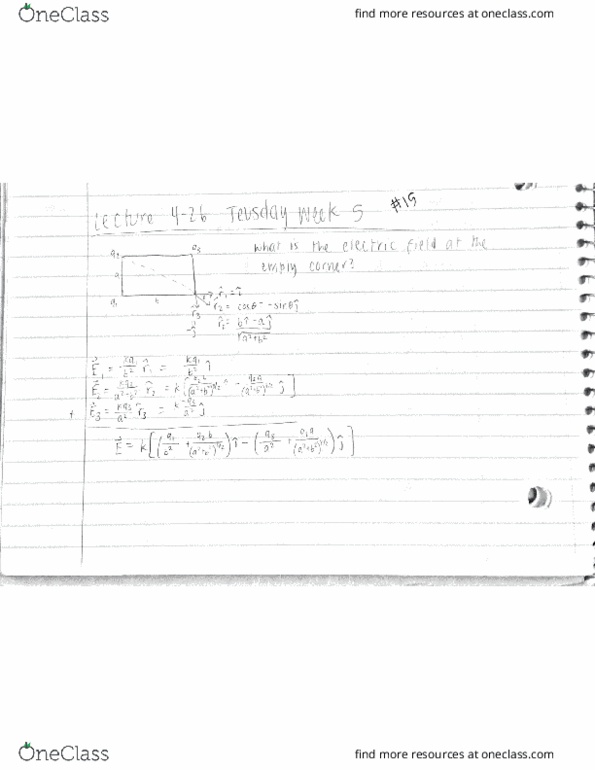 OneClass
find more resources at oneclass.com
Lecture 4-26 Teusday Week 5 #15
what is the electric field at the
empty corner?
q₂ q₃
a
q₁ b
r̂₁ = î
r̂₂ = cosθ - sinθĵ
r̂₃ r̂₂ = bî - aĵ / √a²+b²
-ĵ
E⃗₁ = kq₁/b² r̂₁ = kq₁/b² î
E⃗₂ = kq₂/(a²+b²) r̂₂ = k[q₂b/(a²+b²)^3/2 î - q₂a/(a²+b²)^3/2 ĵ]
+ E⃗₃ = kq₃/a² r̂₃ = k -q₃/a² ĵ
E⃗ = k[(q₁/b² + q₂b/(a²+b²)^3/2) î - (q₃/a² + q₂a/(a²+b²)^3/2) ĵ]
OneClass
find more resources at oneclass.com